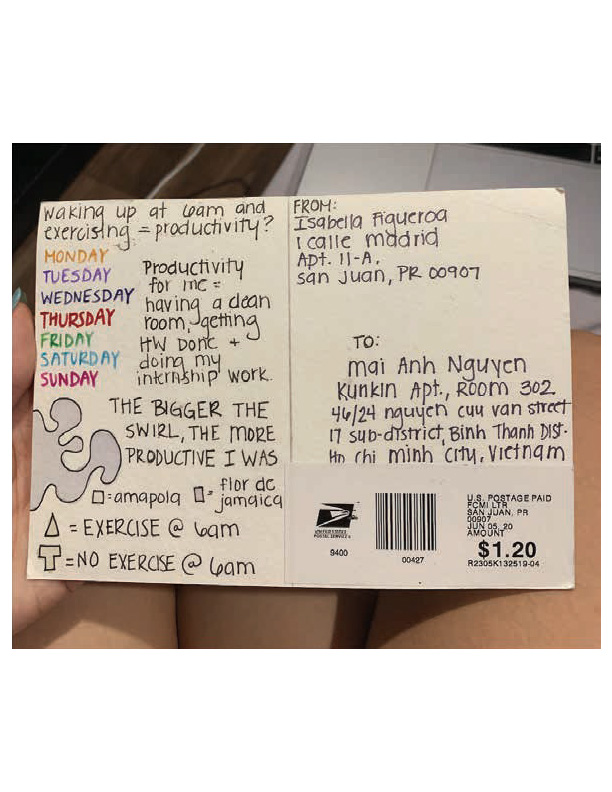 waking up at 6am and
exercising = productivity?
MONDAY
TUESDAY
WEDNESDAY
THURSDAY
FRIDAY
SATURDAY
SUNDAY
Productivity
for me =
having a clean
room, getting
HW DONE +
doing my
internship work.
THE BIGGER THE
SWIRL, THE MORE
PRODUCTIVE I WAS
=amapola = flor de
jamaica
= EXERCISE @ 6am
=NO EXERCISE @ 6am
FROM:
Isabella Figueroa
1 calle madrid
Apt. 11-A.
san juan, PR 00907
TO:
mai Anh Nguyen
Kunkin Apt., ROOM 302
46/24 nguyen cuu van street
17 sub-district, Binh Thanh Dist.
Ho chi minh city, Vietnam
UNITED STATES
POSTAL SERVICE
9400
00427
U.S. POSTAGE PAID
FCMI LTR
SAN JUAN, PR
00907
JUN 05, 20
AMOUNT
$1.20
R2305K132519-04